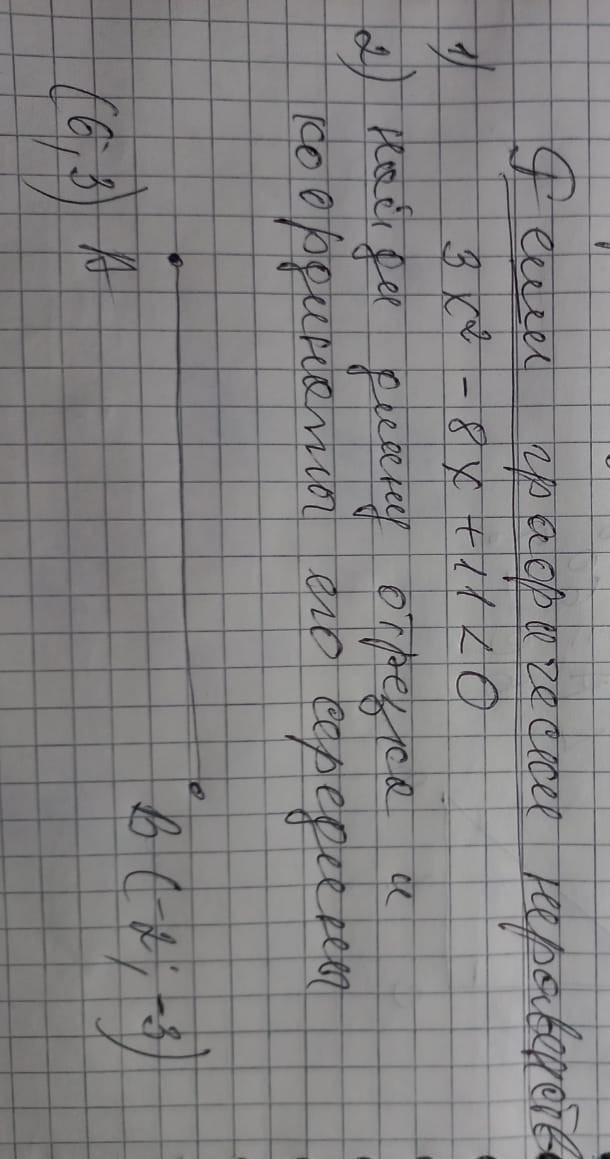 Реши графически неравенств
1) 3x² - 8x + 11 < 0
2) найди длину отрезка и
координаты его середины
(6; 3) A
B (-2; -3)